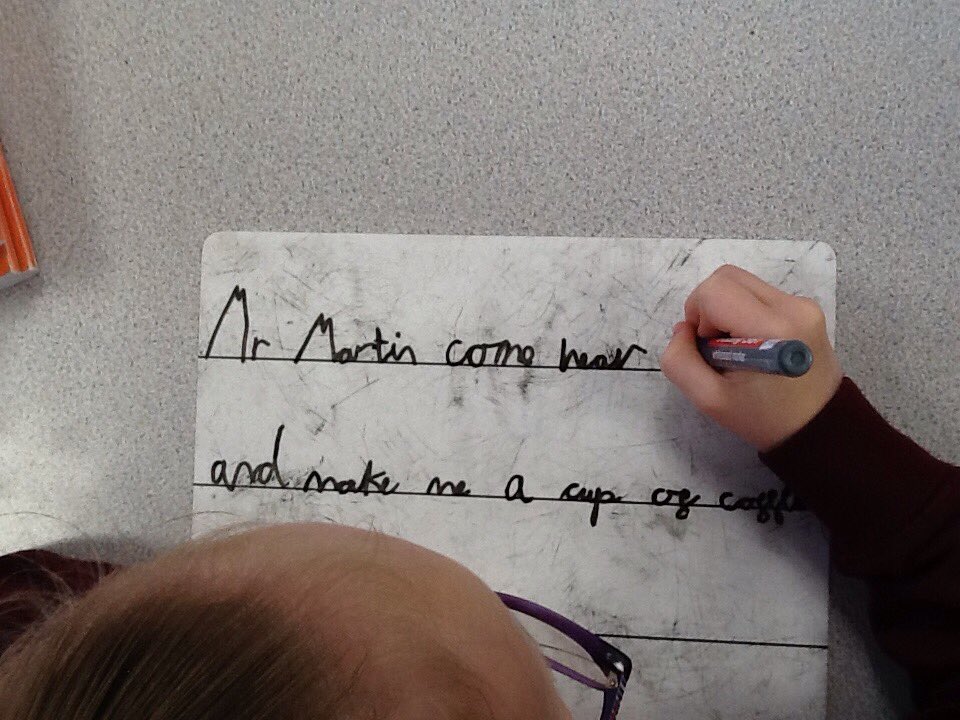 Mr Martin come hear
and make me a cup of coffe